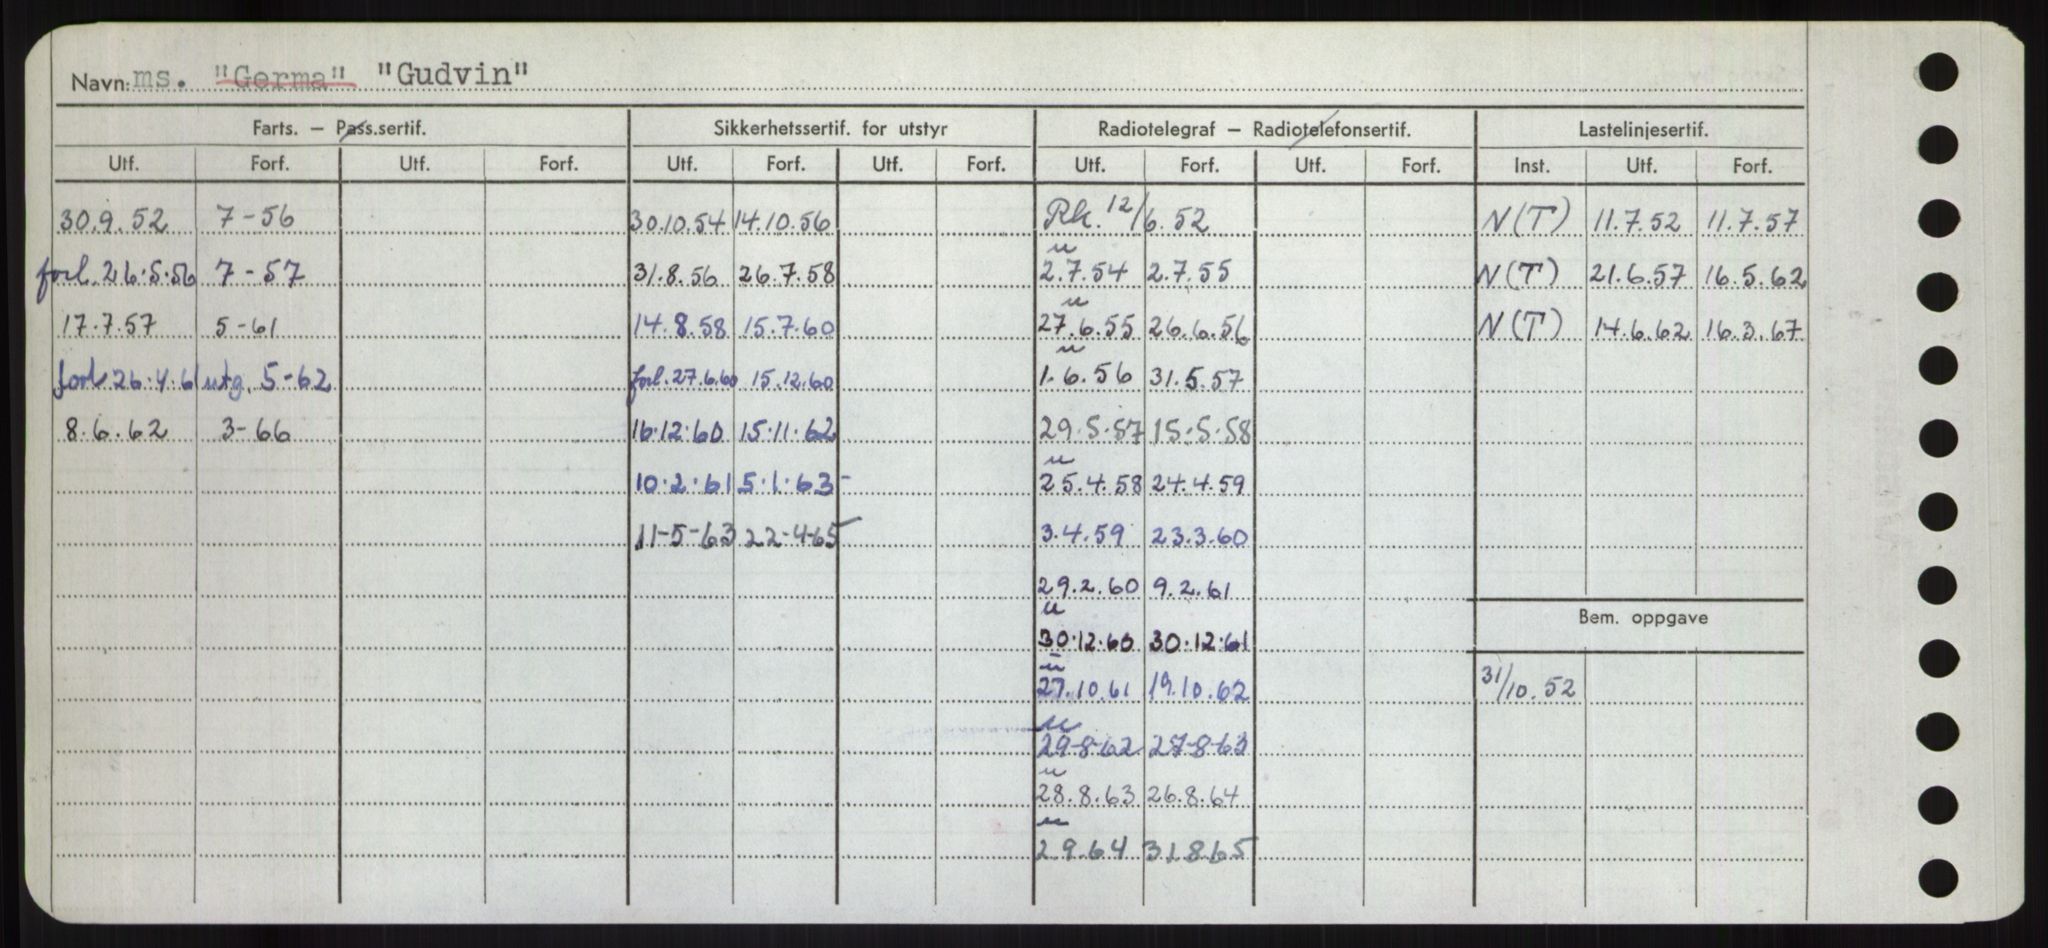 Navn: ms. "Germa" "Gudvin"
Farts. – Pass.sertif. Sikkerhetssertif. for utstyr Radiotelegraf – Radiotelefonsertif. Lastelinjesertif.
Utf. Forf. Utf. Forf. Utf. Forf. Utf. Forf. Utf. Forf. Utf. Forf. Inst. Utf. Forf.
30.9.52 7-56 30.10.54 14.10.56 Rk. 12/6.52 N(T) 11.7.52 11.7.57
u
forl. 26.5.56 7-57 31.8.56 26.7.58 2.7.54 2.7.55 N(T) 21.6.57 16.5.62
u
17.7.57 5-61 14.8.58 15.7.60 27.6.55 26.6.56 N(T) 14.6.62 16.3.67
u
forl 26.4.61 utg. 5-62 forl. 27.6.60 15.12.60 1.6.56 31.5.57
8.6.62 3-66 16.12.60 15.11.62 29.5.57 15.5.58
u
10.2.61 5.1.63- 25.4.58 24.4.59
11-5-63 22-4-65 3.4.59 23.3.60
29.2.60 9.2.61
u
Bem. oppgave
30.12.60 30.12.61
u
27.10.61 19.10.62 31/10.52
u
29-8-62 27-8-63
u
28.8.63 26.8.64
u
2.9.64 31.8.65